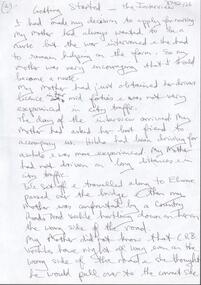 (2) Getting Started - The Interview
I had made my decision to apply for nursing
My Mother had always wanted to be a
nurse but the war intervened & she had
to remain helping on the farm. So my
Mother was very encouraging that I should
become a nurse.
My Mother had just obtained her driver
licence mid forties & was not very
experienced in city traffic.
The day of the interview arrived My
Mother had asked her best friend to
accompany us. Hilda had been driving for
awhile & was more experienced. My Mother
had not driven on long distances & in
city traffic.
We set off & travelled along to
passed over the bridge then my
Mother was confronted by a Country
Roads Board Vehicle hurtling down on her on
the wrong side of the road.
My Mother did not know that C.R.B
Vehicles have right of way even on the
wrong side of the road & she thought
he would pull over to the correct side